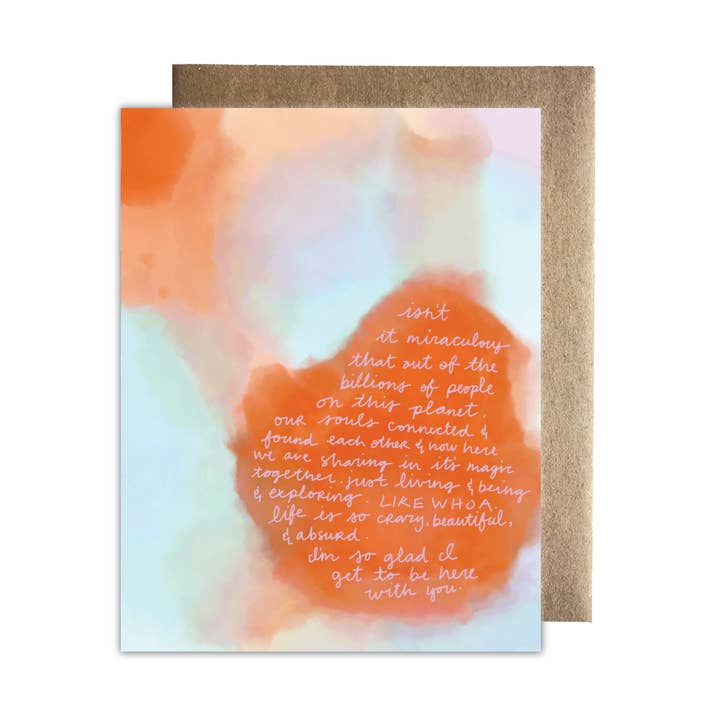 isn't
it miraculous
that out of the
billions of people
on this planet.
our souls connected &
found each other & now here
we are sharing in it's magic
together. just living & being
& exploring. LIKE WHOA.
life is so crazy, beautiful,
& absurd.
I'm so glad I
get to be here
with you.